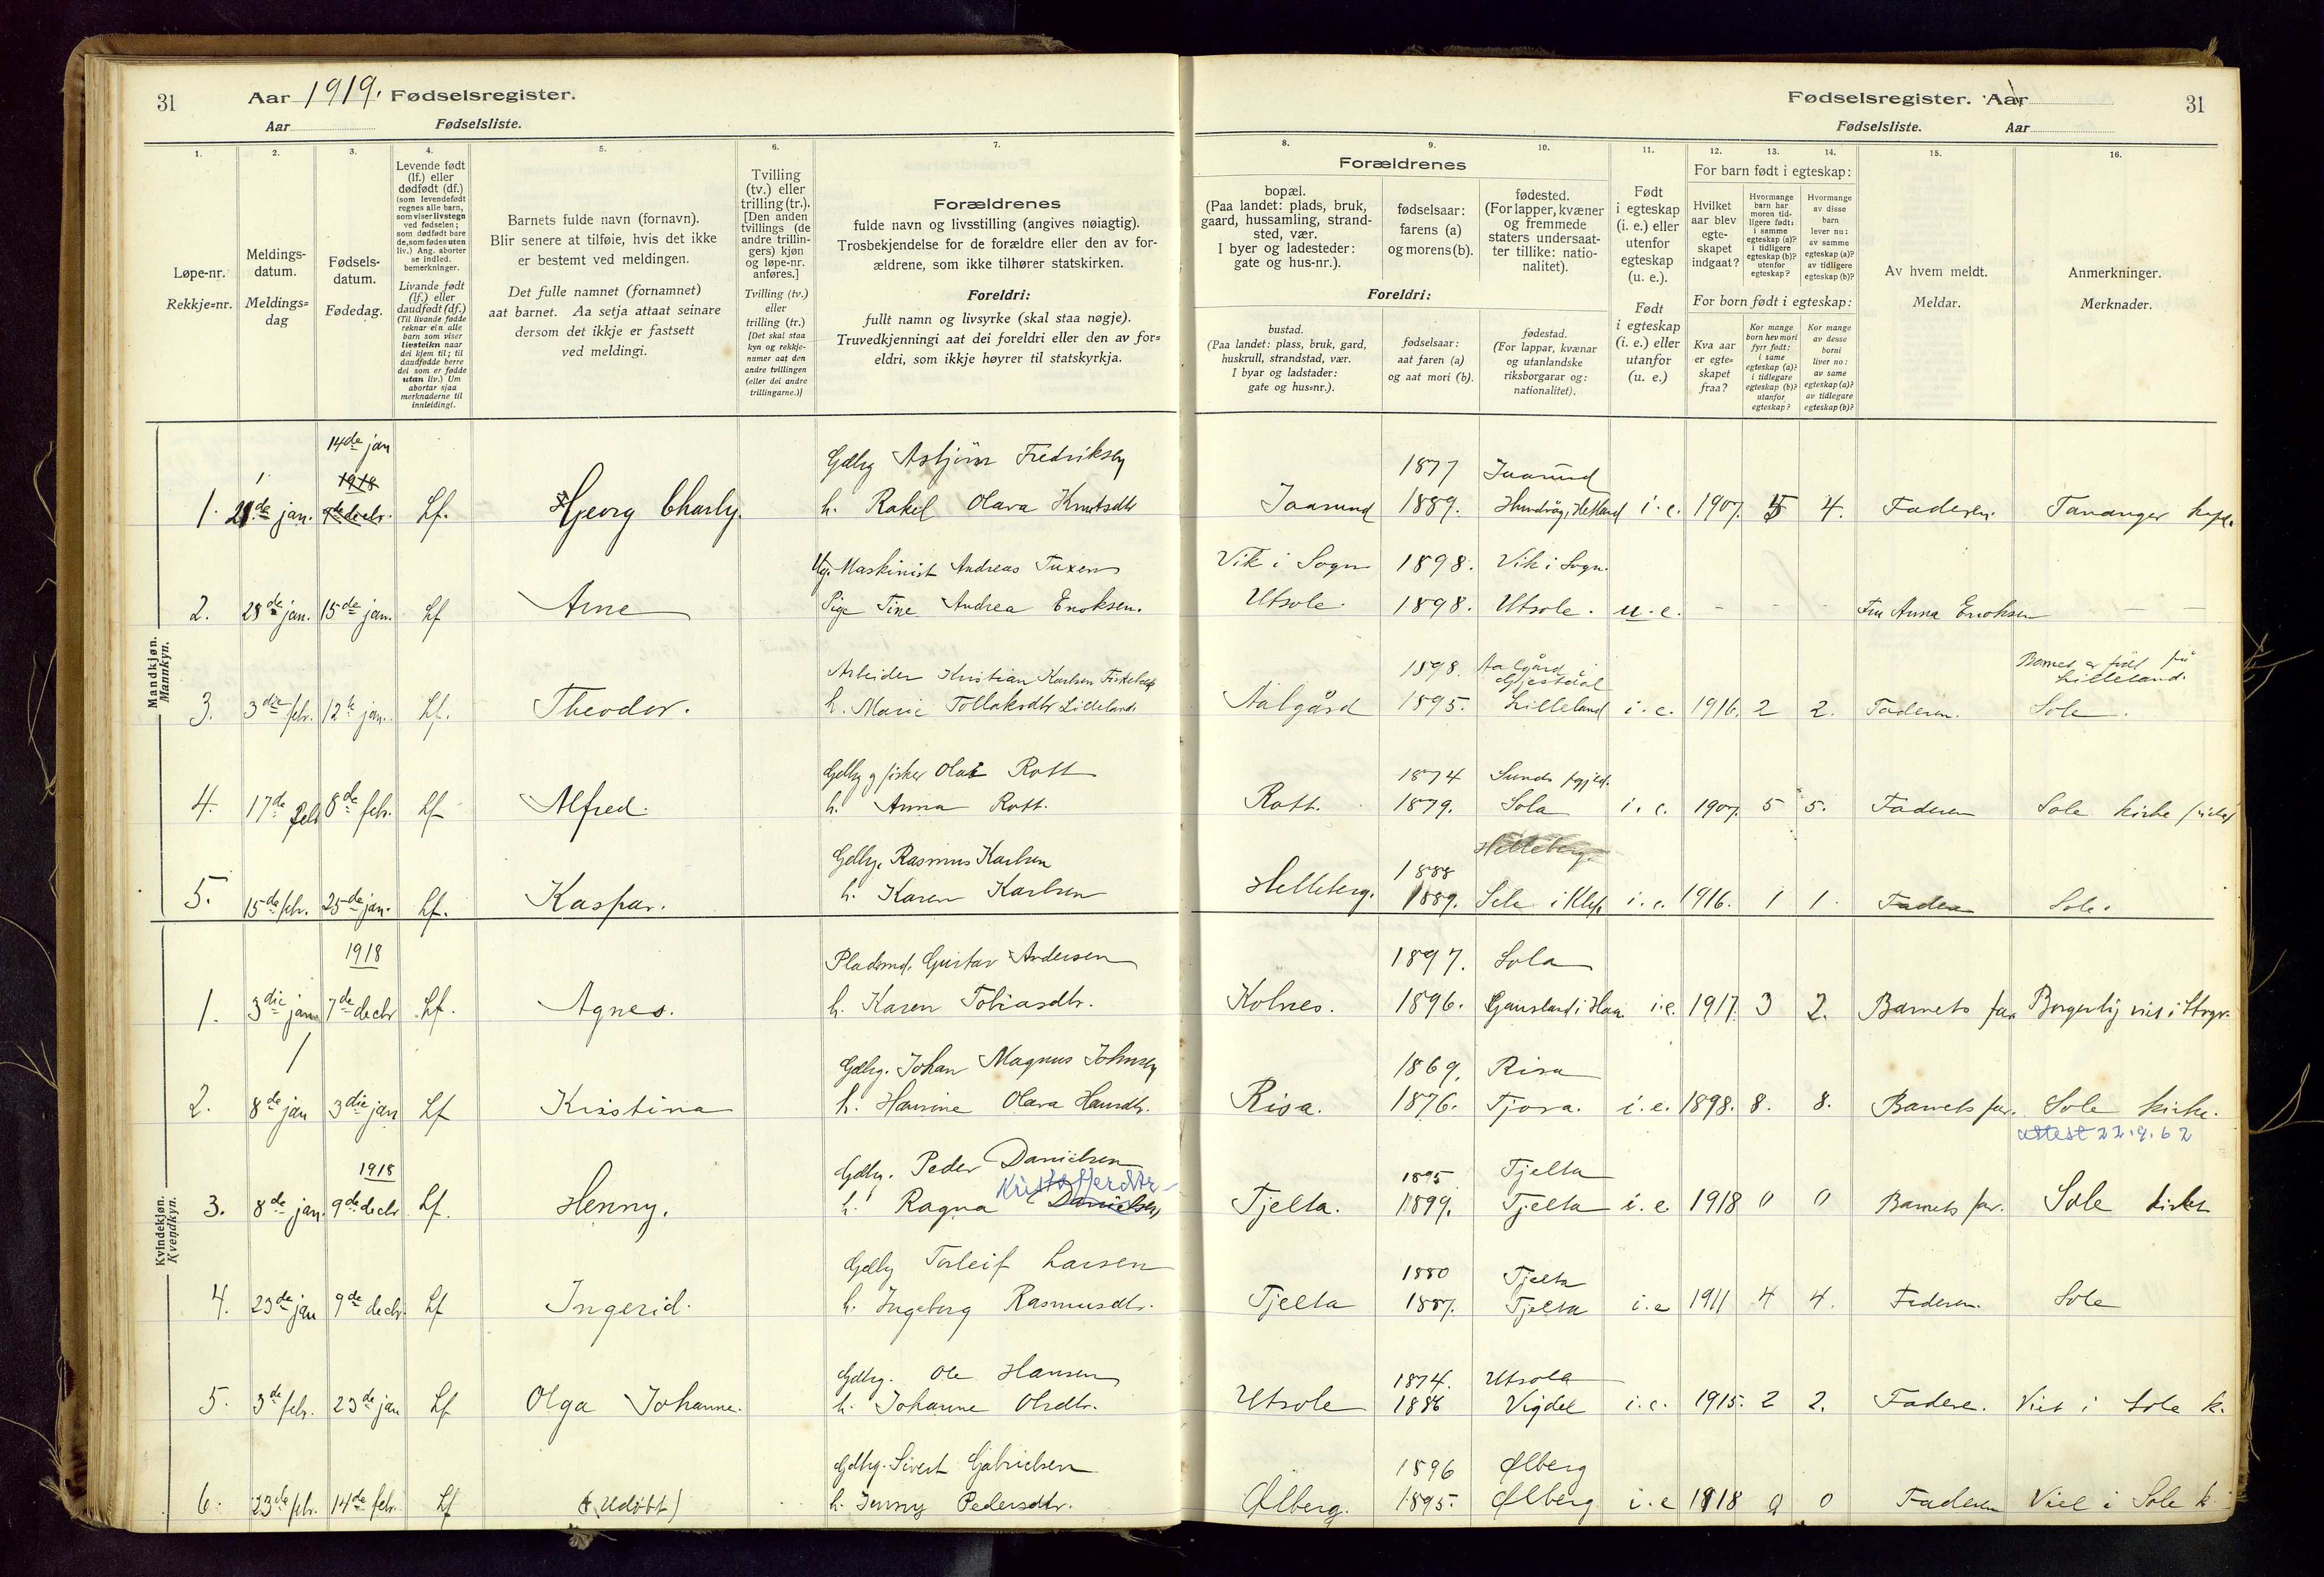 31
Aar 1919. Fødselsregister.
Aar Fødselsliste.
Fødselsregister. Aar
31
Fødselsliste. Aar
1.
2.
3.
4.
5.
6.
7.
8.
9.
10.
11.
12.
13.
14.
15.
16.
Løpe-nr.
Rekkje=nr.
Meldings-
datum.
Meldings=
dag
Fødsels-
datum.
Fødedag.
Levende født
(lf.) eller
dødfødt (df.)
(som levendefødt
regnes alle barn,
som viser livstegn
ved fødselen;
som dødfødt bare
de, som fødes uten
liv.) Ang. aborter
se indled.
bemerkninger.
Livande født
(lf.) eller
daudfødt (df.)
(Til livande fødde
reknar ein alle
barn som viser
livsteikn naar
dei kjem til; til
daudfødde berre
dei som er fødde
utan liv.) Um
abortar sjaa
merknaderne til
innleidingi.
Barnets fulde navn (fornavn).
Blir senere at tilføie, hvis det ikke
er bestemt ved meldingen.
Det fulle namnet (fornamnet)
aat barnet. Aa setja attaat seinare
dersom det ikkje er fastsett
ved meldingi.
Tvilling
(tv.) eller
trilling (tr.).
[Den anden
tvillings (de
andre trillin-
gers) kjøn
og løpe-nr.
anføres.]
Tvilling (tv.)
eller
trilling (tr.)
[Det skal staa
kyn og rekkje-
numer aat den
andre tvillingen
(eller dei andre
trillingarne.)]
Forældrenes
fulde navn og livsstilling (angives nøiagtig).
Trosbekjendelse for de forældre eller den av for-
ældrene, som ikke tilhører statskirken.
Foreldri:
fullt namn og livsyrke (skal staa nøgje).
Truvedkjenningi aat dei foreldri eller den av for=
eldri, som ikkje høyrer til statskyrkja.
Forældrenes
bopæl.
(Paa landet: plads, bruk,
gaard, hussamling, strand-
sted, vær.
I byer og ladesteder:
gate og hus-nr.).
fødselsaar:
farens (a)
og morens (b).
fødested.
(For lapper, kvæner
og fremmede
staters undersaat-
ter tillike: natio-
nalitet).
Foreldri:
bustad.
(Paa landet: plass, bruk, gard,
huskrull, strandstad, vær.
I byar og ladstader:
gate og hus=nr.).
fødselsaar:
aat faren (a)
og aat mori (b).
fødestad.
(For lappar, kvænar
og utanlandske
riksborgarar og:
nationalitet).
Født
i egteskap
(i. e.) eller
utenfor
egteskap
(u. e.).
Født
i egteskap
(i. e.) eller
utanfor
(u. e.)
For barn født i egteskap:
Hvilket
aar blev
egte-
skapet
indgaat?
Hvormange
barn har
moren tid-
ligere født:
i samme
egteskap (a)?
i tidligere
egteskap (b)?
utenfor
egteskap?
Hvormange
av disse
barn
lever nu:
av samme
egteskap (a)?
av tidligere
egteskap (b)?
For born født i egteskap:
Kva aar
er egte=
skapet
fraa?
Kor mange
born hev mori
fyrr født:
i same
egteskap (a)?
i tidlegare
egteskap (b)?
utanfor
egteskap?
Kor mange
av desse
borni
liver no:
av same
egteskap (a)?
av tidlegare
egteskap (b)?
Av hvem meldt.
Meldar.
Anmerkninger.
Merknader.
Mandkjøn.
Mannkyn.
14de jan
1918
1. 21de jan. 9de decbr. Lf. Georg Charly. Gdbg Asbjørn Fredriksen
h. Rakel Olava Knutsdtr Jaasund 1877 Jaasund
1889. Hundvåg, Hetland i. e. 1907. 5 4. Faderen. Tananger kapel.
2. 28de jan. 15de jan. Lf Arne Ug. Maskinist Andreas Tuxen
Pige Tine Andrea Enoksen. Vik i Sogn 1898. Vik i Sogn.
Utsole. 1898. Utsole. u. e. - - - Fru Anna Enoksen — —
3. 3die febr. 12te jan. Lf. Theodor. Arbeider Kristian Karlsen
h. Marie Tollaksdtr Lilleland. Aalgård 1898. Aalgård i Gjestdal
1895. Lilleland i. e. 1916. 2 2. Faderen. Barnet er født på Lilleland.
Sole.
4. 17de feb 8de febr. Lf Alfred. Gdbg og fisker Olai Rott
h. Anna Rott. Rott. 1874 Sunds
1879. Sola i. e. 1907. 5 5. Faderen Sole kirke
5. 15de febr. 25de jan. Lf. Kaspar. Gdbg. Rasmus Karlsen
h. Karen Karlsen Helleberg. 1888 Helleberg
1889. Sele i Klep i. e. 1916. 1 1. Faderen Sole.
Kvindekjøn.
Kvendkyn.
1918
1. 3die jan 7de decbr Lf. Agnes. Pladsmd. Gustav Andersen
h. Karen Tobiasdtr. Kolnes. 1897. Sola
1896. Gausland i Haa. i. e. 1917. 3 2. Barnets far. Borgerlig viet i Stvgr.
2. 8de jan 3die jan Lf Kristina Gdbg. Johan Magnus Johnsen
h. Hansine Olava Hansdtr. Risa. 1869. Risa
1876. Tjora. i. e. 1898. 8. 8. Barnets far. Sole kirke.
attest 22.9.62
1918
3. 8de jan. 9de decbr Lf. Henny. Gdbg. Peder Danielsen
Kristoffersdtr
h. Ragna Danielsen Tjelta. 1895 Tjelta
1899. Tjelta i. e. 1918 0 0 Barnets far. Sole kirke
4. 23de jan 9de decbr. Lf Ingerid. Gdbg Torleif Larsen
h. Ingeborg Rasmusdtr. Tjelta 1880 Tjelta
1887. Tjelta i. e 1911 4 4. Faderen. Sole
5. 3de febr. 23de jan Lf Olga Johanne. Gdbg. Ole Hansen
h. Johanne Olsdtr. Utsole 1874. Utsola
1886 Vigdel i. e. 1915. 2 2. Fadere. Viet i Sole k.
6. 23de febr. 14de febr. Lf (Udøbt) Gdbg. Sivert Gabrielsen
h. Jenny Pedersdtr. Ølberg. 1896 Ølberg
1895. Ølberg i. e 1918 0 0 Faderen Viet i Sole k